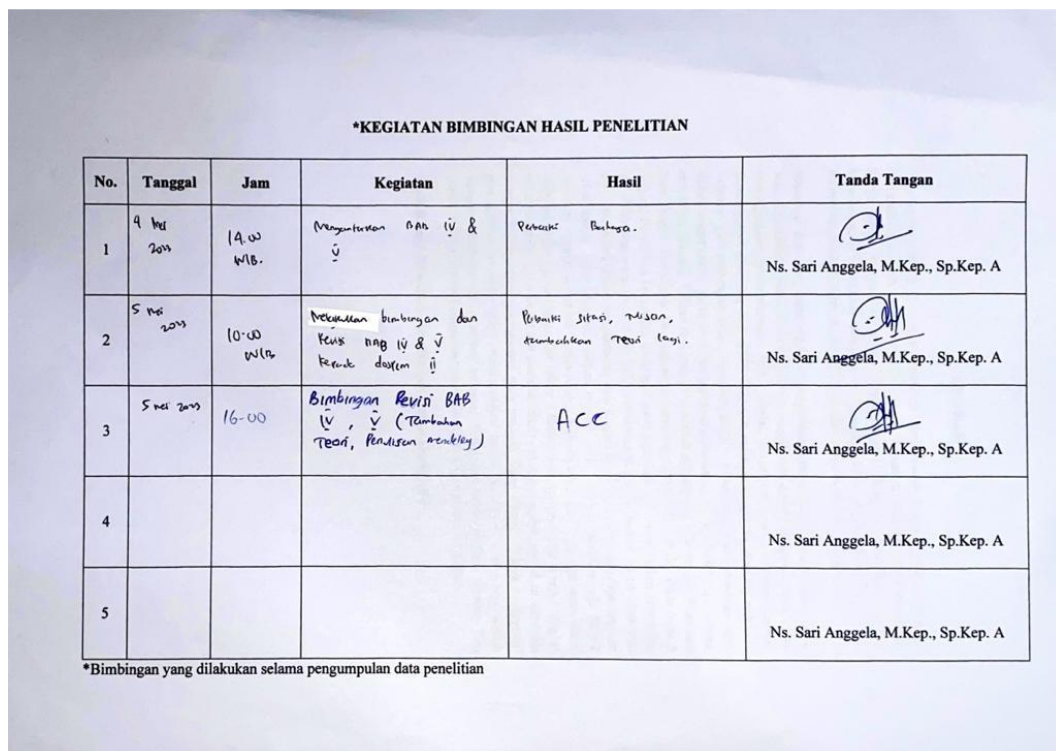 *KEGIATAN BIMBINGAN HASIL PENELITIAN
No. Tanggal Jam Kegiatan Hasil Tanda Tangan
1
4 Mei
2023
14.00
WIB.
BAB IV &
V
Perbaiki Bahasa.
Ns. Sari Anggela, M.Kep., Sp.Kep. A
2
5 Mei
2023
10.00
WIB
Melakukan bimbingan dan
Revisi BAB IV & V
II
Perbaiki sitasi, tulisan,
tambahkan Teori lagi.
Ns. Sari Anggela, M.Kep., Sp.Kep. A
3
5 Mei 2023
16.00
Bimbingan Revisi BAB
IV, V (Tambahan
Teori, Penulisan mendeley)
ACC
Ns. Sari Anggela, M.Kep., Sp.Kep. A
4
Ns. Sari Anggela, M.Kep., Sp.Kep. A
5
Ns. Sari Anggela, M.Kep., Sp.Kep. A
*Bimbingan yang dilakukan selama pengumpulan data penelitian